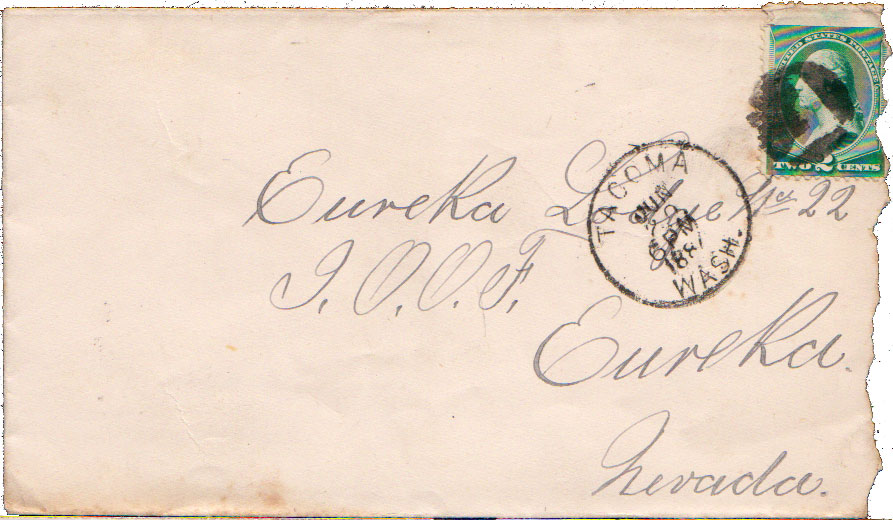 UNITED STATES POSTAGE
TWO 2 CENTS
TACOMA
JUN
6 PM
188
WASH.
Eureka Lodge No 22
I. O. O. F.
Eureka.
Nevada.